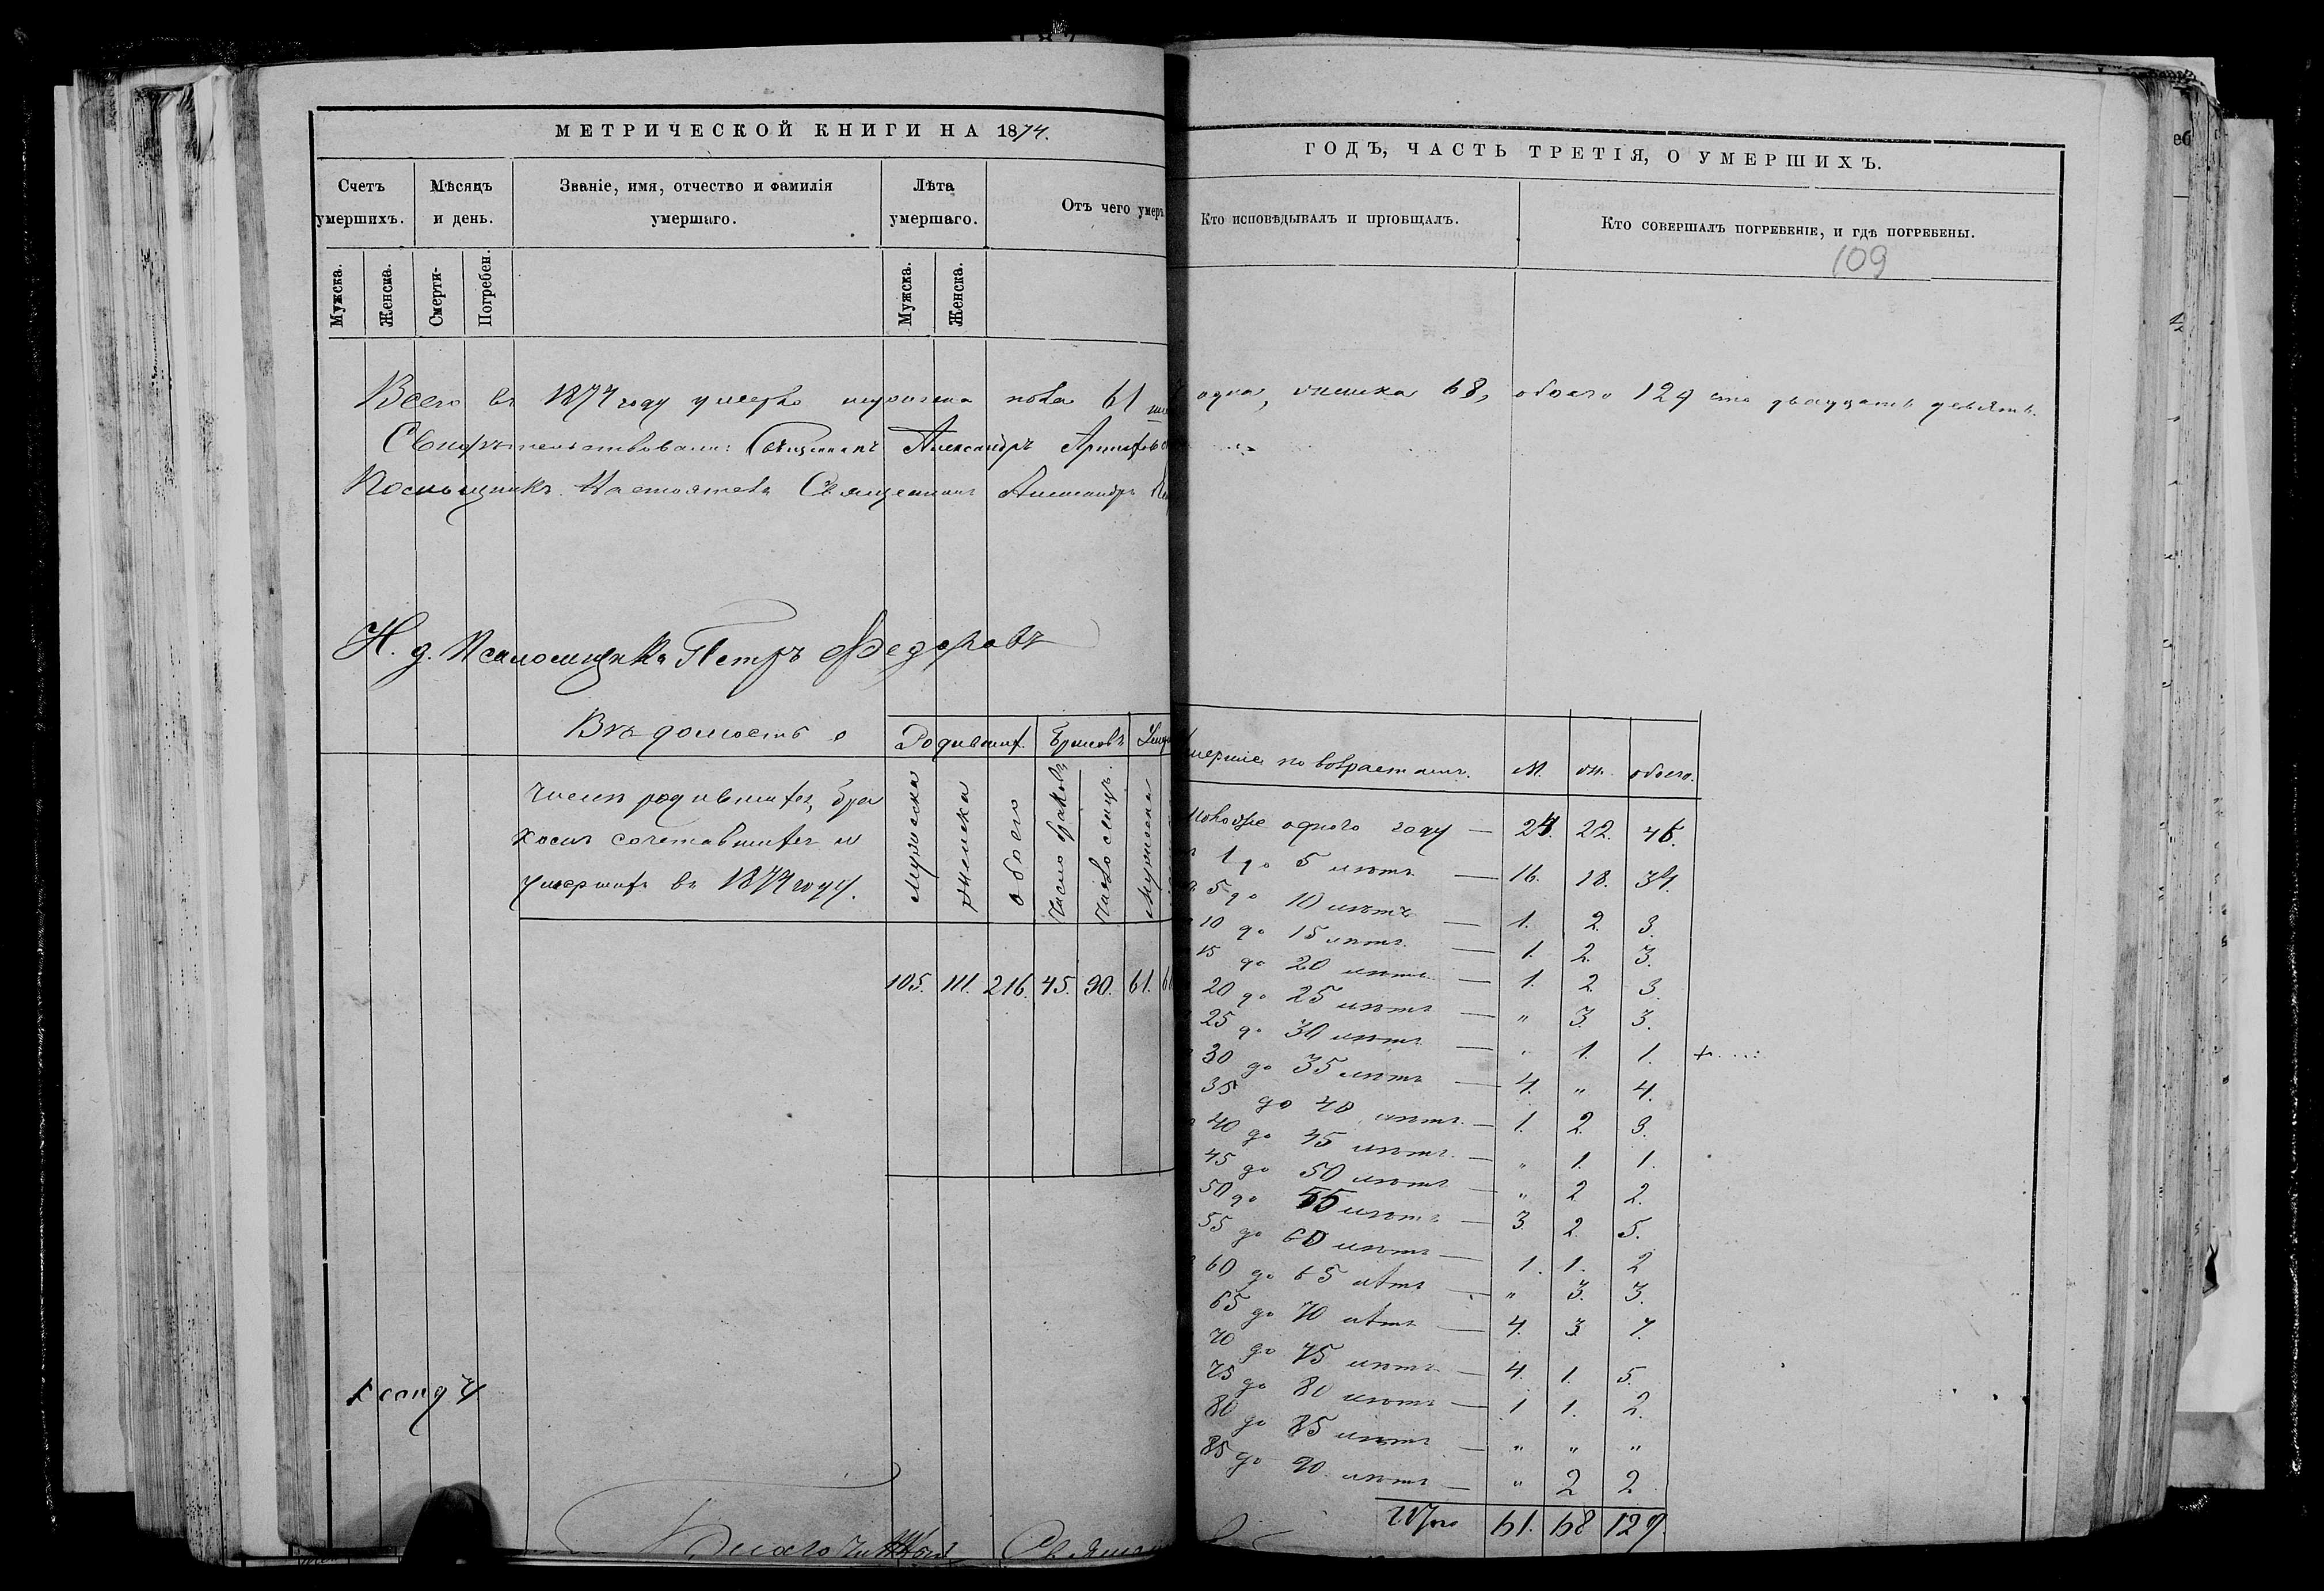 МЕТРИЧЕСКОЙ КНИГИ НА 1874.
Счетъ умершихъ.
Мѣсяцъ и день.
Званіе, имя, отчество и фамилія умершаго.
Лѣта умершаго.
Отъ чего умеръ
Мужска.
Женска.
Смерти-
Погребен.
Мужска.
Женска.
Всего въ 1874 году умерло мужеска пола 61
Свидѣтельствовали: Священникъ Александръ
Настоятель Священникъ Александръ
И. д. Псаломщика Петръ Федоровъ
Вѣдомость о
числѣ родившихся, бра
комъ сочетавшихся и
умершихъ въ 1874 году.
Родившихъ. Браковъ
мужеска
женска
обоего
число браковъ
число лицъ.
мужеска
105. 111. 216. 45. 90. 61. 6
Благочинный Священ
ГОДЪ, ЧАСТЬ ТРЕТІЯ, О УМЕРШИХЪ.
Кто исповѣдывалъ и пріобщалъ.
Кто совершалъ погребеніе, и гдѣ погребены.
109
одна, женска 68, обоего 129 сто двадцать девять.
мершие по возрастамъ. М. ж. обоего.
Моложе одного году — 24. 22. 46.
1 до 5 лѣтъ — 16. 18. 34.
5 до 10 лѣтъ — 1. 2. 3.
10 до 15 лѣтъ — 1. 2. 3.
15 до 20 лѣтъ — 1. 2. 3.
20 до 25 лѣтъ — " 3. 3.
25 до 30 лѣтъ — " 1. 1.
30 до 35 лѣтъ — 4. " 4.
35 до 40 лѣтъ — 1. 2. 3.
40 до 45 лѣтъ — " 1. 1.
45 до 50 лѣтъ — " 2 2.
50 до 55 лѣтъ — 3. 2. 5.
55 до 60 лѣтъ — 1. 1. 2
60 до 65 лѣтъ — " 3. 3.
65 до 70 лѣтъ — 4. 3 7.
70 до 75 лѣтъ — 4. 1. 5.
75 до 80 лѣтъ — 1 1. 2.
80 до 85 лѣтъ — " " "
85 до 90 лѣтъ — " 2 2.
Итого 61. 68 129